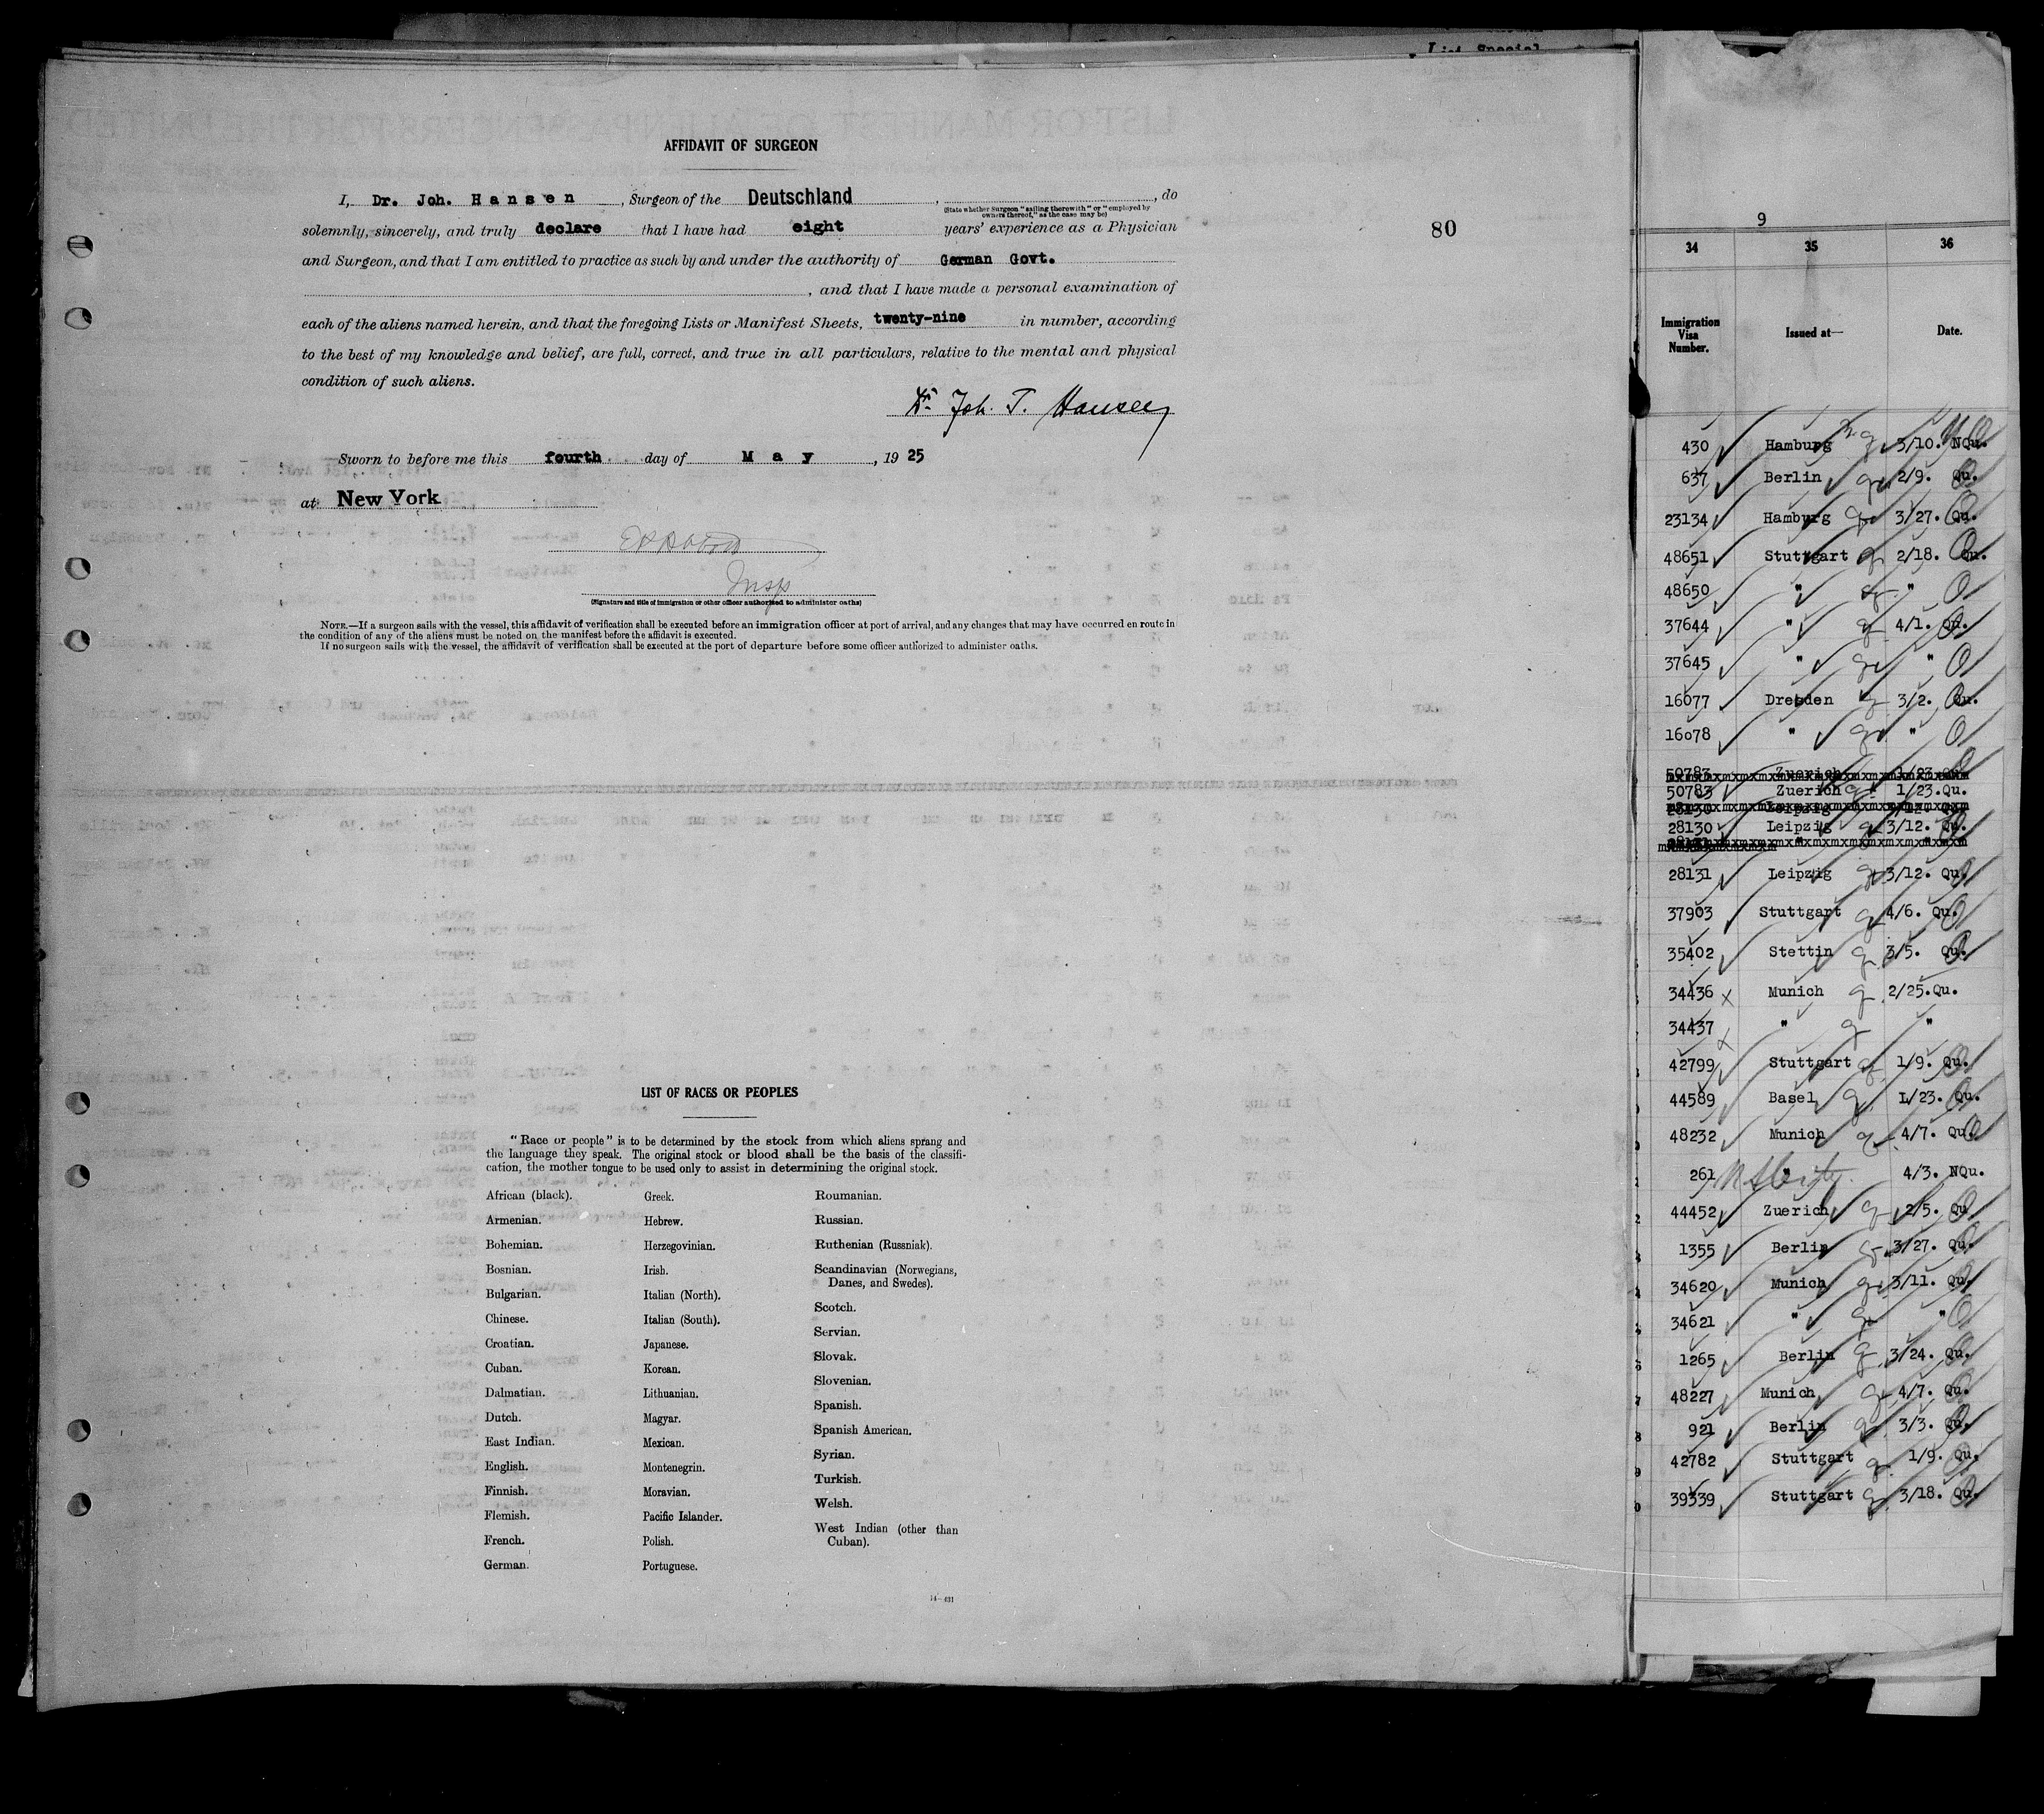 AFFIDAVIT OF SURGEON
I, Dr. Joh. Hansen, Surgeon of the Deutschland, , do
(State whether Surgeon "sailing therewith" or "employed by
owners thereof," as the case may be)
solemnly, sincerely, and truly declare that I have had eight years' experience as a Physician
and Surgeon, and that I am entitled to practice as such by and under the authority of German Govt.
, and that I have made a personal examination of
each of the aliens named herein, and that the foregoing Lists or Manifest Sheets, twenty-nine in number, according
to the best of my knowledge and belief, are full, correct, and true in all particulars, relative to the mental and physical
condition of such aliens.
Dr. Joh. T. Hansen
Sworn to before me this fourth day of May, 1925
at New York
Insp
(Signature and title of immigration or other officer authorized to administer oaths)
NOTE.—If a surgeon sails with the vessel, this affidavit of verification shall be executed before an immigration officer at port of arrival, and any changes that may have occurred en route in
the condition of any of the aliens must be noted on the manifest before the affidavit is executed.
If no surgeon sails with the vessel, the affidavit of verification shall be executed at the port of departure before some officer authorized to administer oaths.
80
LIST OF RACES OR PEOPLES
"Race or people" is to be determined by the stock from which aliens sprang and
the language they speak. The original stock or blood shall be the basis of the classifi-
cation, the mother tongue to be used only to assist in determining the original stock.
African (black).
Armenian.
Bohemian.
Bosnian.
Bulgarian.
Chinese.
Croatian.
Cuban.
Dalmatian.
Dutch.
East Indian.
English.
Finnish.
Flemish.
French.
German.
Greek.
Hebrew.
Herzegovinian.
Irish.
Italian (North).
Italian (South).
Japanese.
Korean.
Lithuanian.
Magyar.
Mexican.
Montenegrin.
Moravian.
Pacific Islander.
Polish.
Portuguese.
Roumanian.
Russian.
Ruthenian (Russniak).
Scandinavian (Norwegians,
Danes, and Swedes).
Scotch.
Servian.
Slovak.
Slovenian.
Spanish.
Spanish American.
Syrian.
Turkish.
Welsh.
West Indian (other than
Cuban).
14—431
9
34 35 36
Immigration
Visa
Number.
Issued at—
Date.
430 Hamburg 3/10. NQu.
637 Berlin 2/9. Qu.
23134 Hamburg 3/27. Qu.
48651 Stuttgart 2/18. Qu.
48650 " "
37644 " 4/1. Qu.
37645 " "
16077 Dresden 3/2. Qu.
16078 " "
50783 Zuerich 1/23.Qu.
50783 Zuerich 1/23.Qu.
28130 Leipzig 3/12. Qu.
28131 Leipzig 3/12. Qu.
37903 Stuttgart 4/6. Qu.
35402 Stettin 3/5. Qu.
34436 Munich 2/25.Qu.
34437 " "
42799 Stuttgart 1/9. Qu.
44589 Basel 1/23. Qu.
48232 Munich 4/7. Qu.
261 " 4/3. NQu.
44452 Zuerich 2/5. Qu
1355 Berlin 3/27. Qu.
34620 Munich 3/11. Qu.
34621 " "
1265 Berlin 3/24. Qu.
48227 Munich 4/7. Qu.
921 Berlin 3/3. Qu.
42782 Stuttgart 1/9. Qu.
39339 Stuttgart 3/18. Qu.